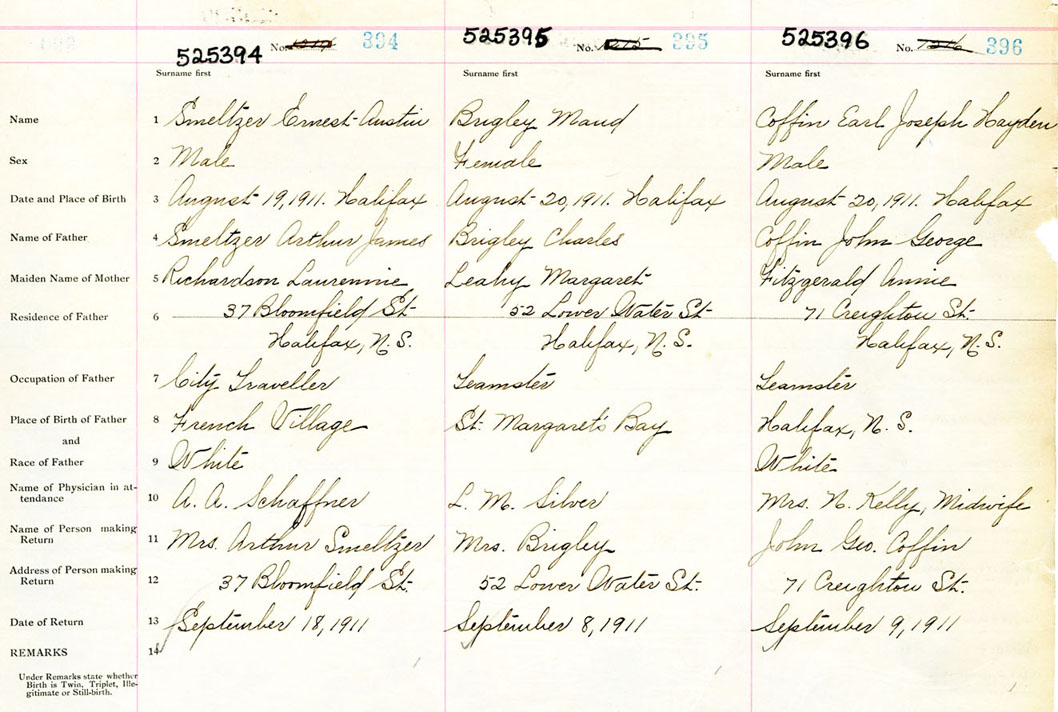 525394 No. 394 525395 No. 1215 395 525396 No. 1216 396
Surname first Surname first Surname first
Name 1 Smeltzer Ernest Austin Brigley Maud Coffin Earl Joseph Hayden
Sex 2 Male Female Male
Date and Place of Birth 3 August 19, 1911. Halifax August 20, 1911. Halifax August 20, 1911. Halifax
Name of Father 4 Smeltzer Arthur James Brigley Charles Coffin John George
Maiden Name of Mother 5 Richardson Laurennie Leahy Margaret Fitzgerald Annie
Residence of Father 6 37 Bloomfield St. 52 Lower Water St. 71 Creighton St.
Halifax, N.S. Halifax, N.S. Halifax, N.S.
Occupation of Father 7 City Traveller Teamster Teamster
Place of Birth of Father 8 French Village St. Margaret's Bay Halifax, N.S.
and
Race of Father 9 White White
Name of Physician in at-
tendance 10 A. A. Schaffner L. M. Silver Mrs. N. Kelly, Midwife
Name of Person making
Return 11 Mrs. Arthur Smeltzer Mrs. Brigley John Geo. Coffin
Address of Person making
Return 12 37 Bloomfield St. 52 Lower Water St. 71 Creighton St.
Date of Return 13 September 18, 1911 September 8, 1911 September 9, 1911
REMARKS 14
Under Remarks state whether
Birth is Twin, Triplet, Ille-
gitimate or Still-birth.